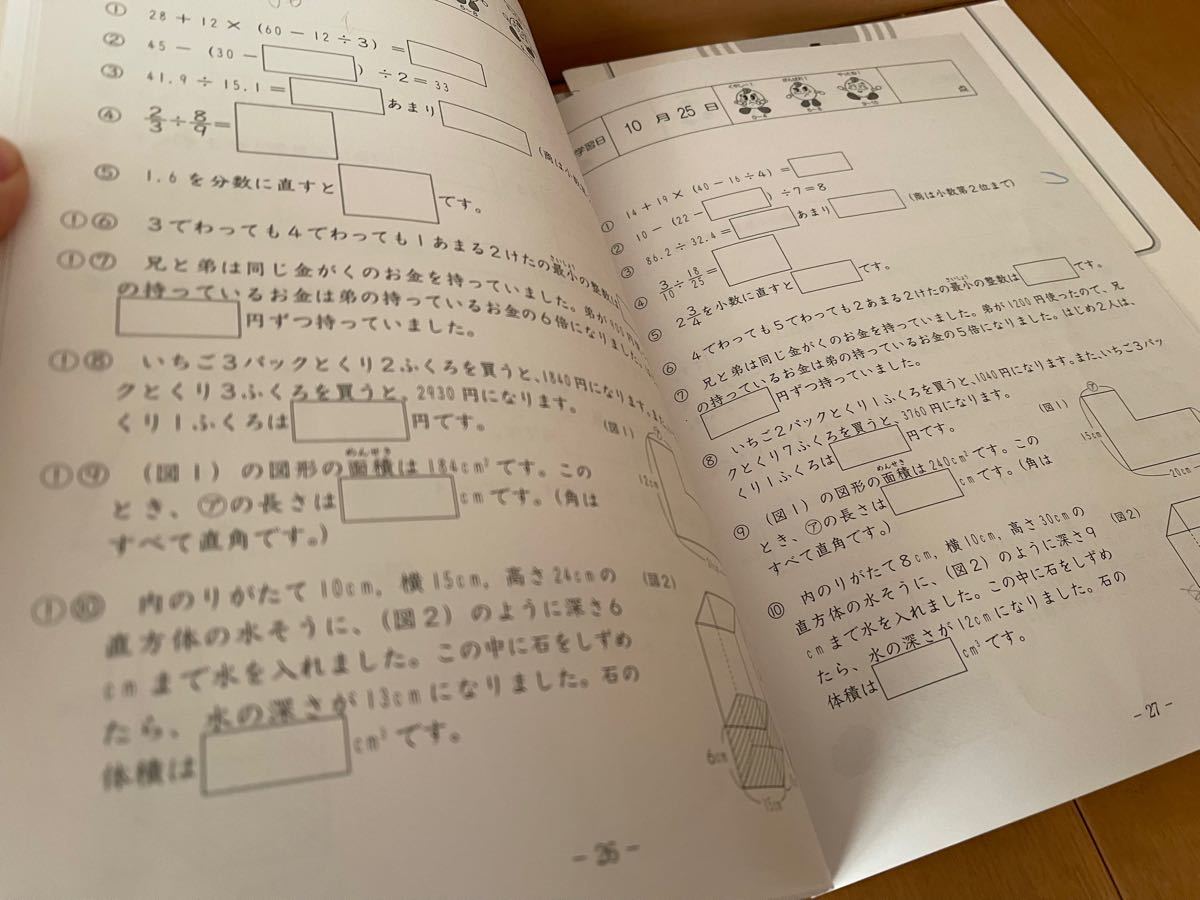 ① 28＋12×(60－12÷3)＝
② 45－(30－ )÷2＝33
③ 41.9÷15.1＝ あまり (商は小数
④ 2/3÷8/9＝
⑤ 1.6を分数に直すと です。
①⑥ 3でわっても4でわっても1あまる2けたの最小の整数は
さいしょう
①⑦ 兄と弟は同じ金がくのお金を持っていました。弟が
の持っているお金は弟の持っているお金の6倍になりました。
円ずつ持っていました。
①⑧ いちご3パックとくり2ふくろを買うと、1840円になります。また、
クとくり3ふくろを買うと、2930円になります。
くり1ふくろは 円です。
(図1)
㋐
12cm
めんせき
①⑨ (図1)の図形の面積は184cm²です。この
とき、㋐の長さは cmです。(角は
すべて直角です。)
①⑩ 内のりがたて10cm, 横15cm, 高さ24cmの
直方体の水そうに、(図2)のように深さ6
cmまで水を入れました。この中に石をしずめ
たら、水の深さが13cmになりました。石の
体積は cm³です。
(図2)
6cm
15cm
－26－
学習日 10月25日 点
0～4 5～8 9～10
① 14＋19×(40－16÷4)＝
② 10－(22－ )÷7＝8
③ 86.2÷32.4＝ あまり (商は小数第2位まで)
④ 3/10÷18/25＝
⑤ 2 3/4を小数に直すと です。
さいしょう
⑥ 4でわっても5でわっても2あまる2けたの最小の整数は です。
⑦ 兄と弟は同じ金がくのお金を持っていました。弟が1200円使ったので、兄
の持っているお金は弟の持っているお金の5倍になりました。はじめ2人は、
円ずつ持っていました。
⑧ いちご2パックとくり1ふくろを買うと、1040円になります。また、いちご3パッ
クとくり7ふくろを買うと、3760円になります。
くり1ふくろは 円です。
(図1)
㋐
15cm
20cm
めんせき
⑨ (図1)の図形の面積は240cm²です。この
とき、㋐の長さは cmです。(角は
すべて直角です。)
⑩ 内のりがたて8cm, 横10cm, 高さ30cmの
直方体の水そうに、(図2)のように深さ9
cmまで水を入れました。この中に石をしずめ
たら、水の深さが12cmになりました。石の
体積は cm³です。
(図2)
－27－